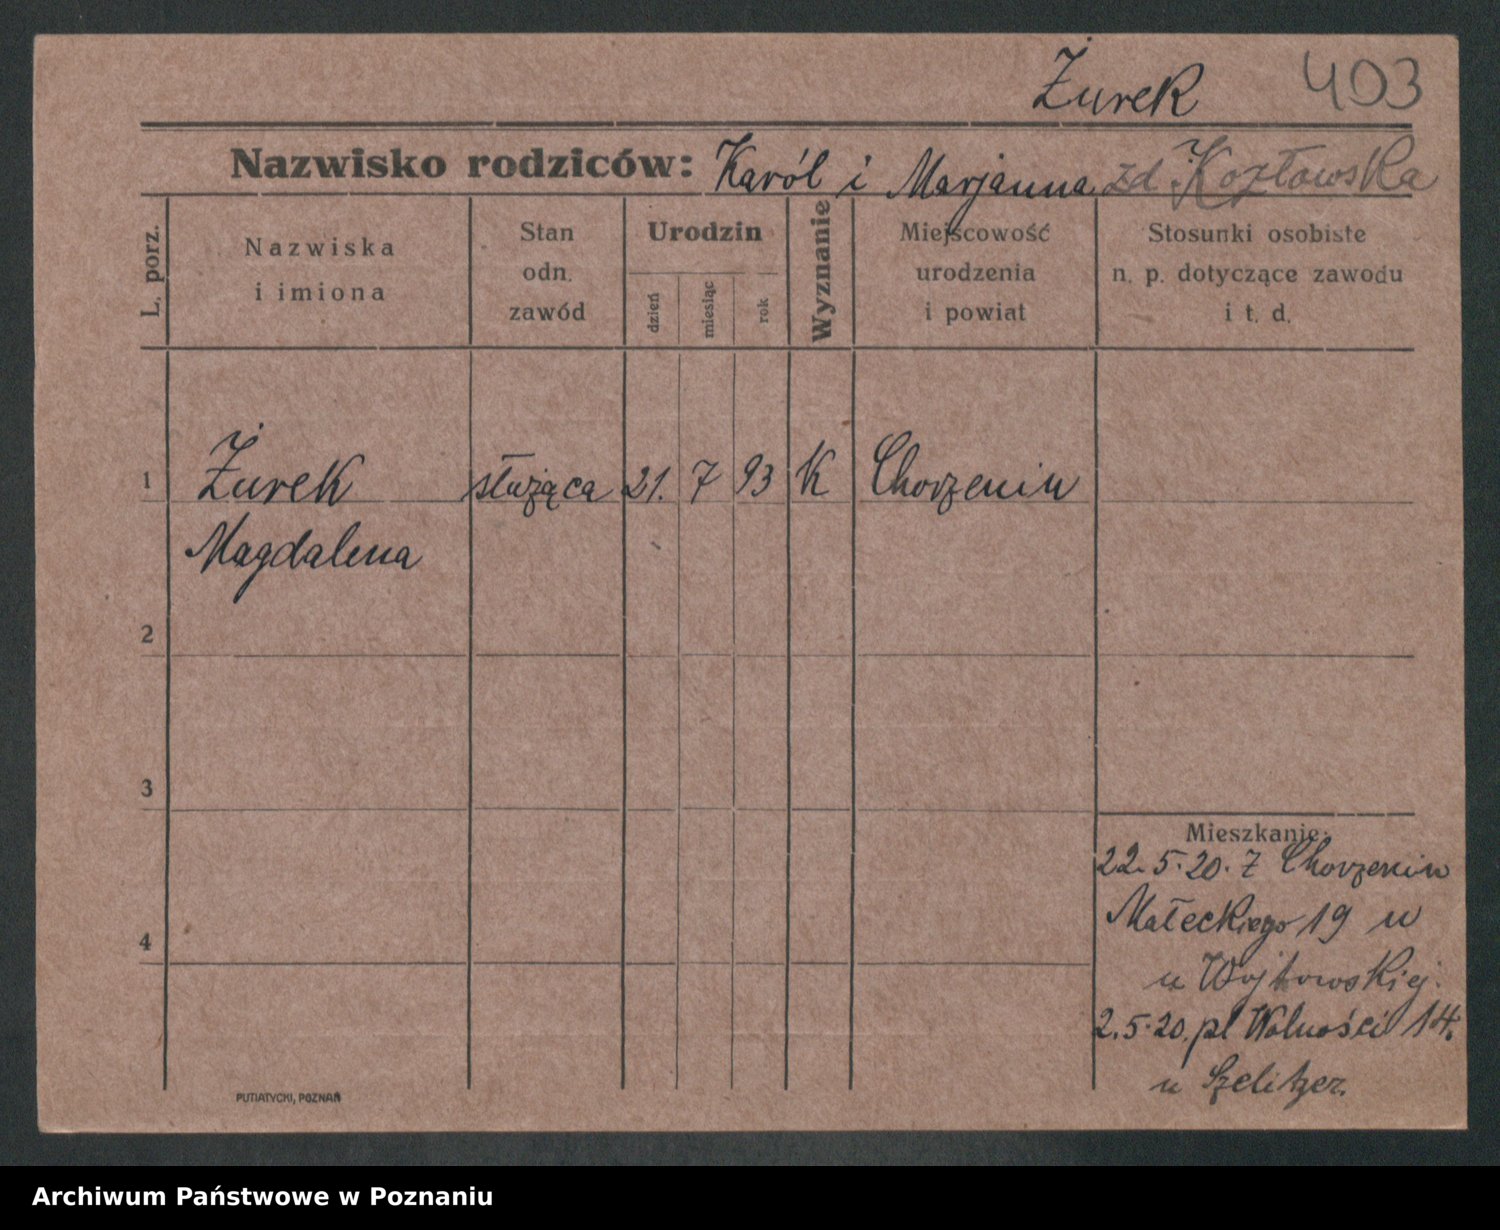 Żurek 403
Nazwisko rodziców: Karól i Marjanna zd. Kozłowska
L. porz.
Nazwiska
i imiona
Stan
odn.
zawód
Urodzin
dzień
miesiąc
rok
Wyznanie
Miejscowość
urodzenia
i powiat
Stosunki osobiste
n. p. dotyczące zawodu
i t. d.
1 Żurek służąca 21. 7 93 K Chorzenin
Magdalena
2
3
4
Mieszkanie:
22.5.20. z Chorzenin
Małeckiego 19
u Wojtowskiej.
2.5.20. pl Wolności 14.
u Szelitzer.
PUTIATYCKI, POZNAŃ
Archiwum Państwowe w Poznaniu